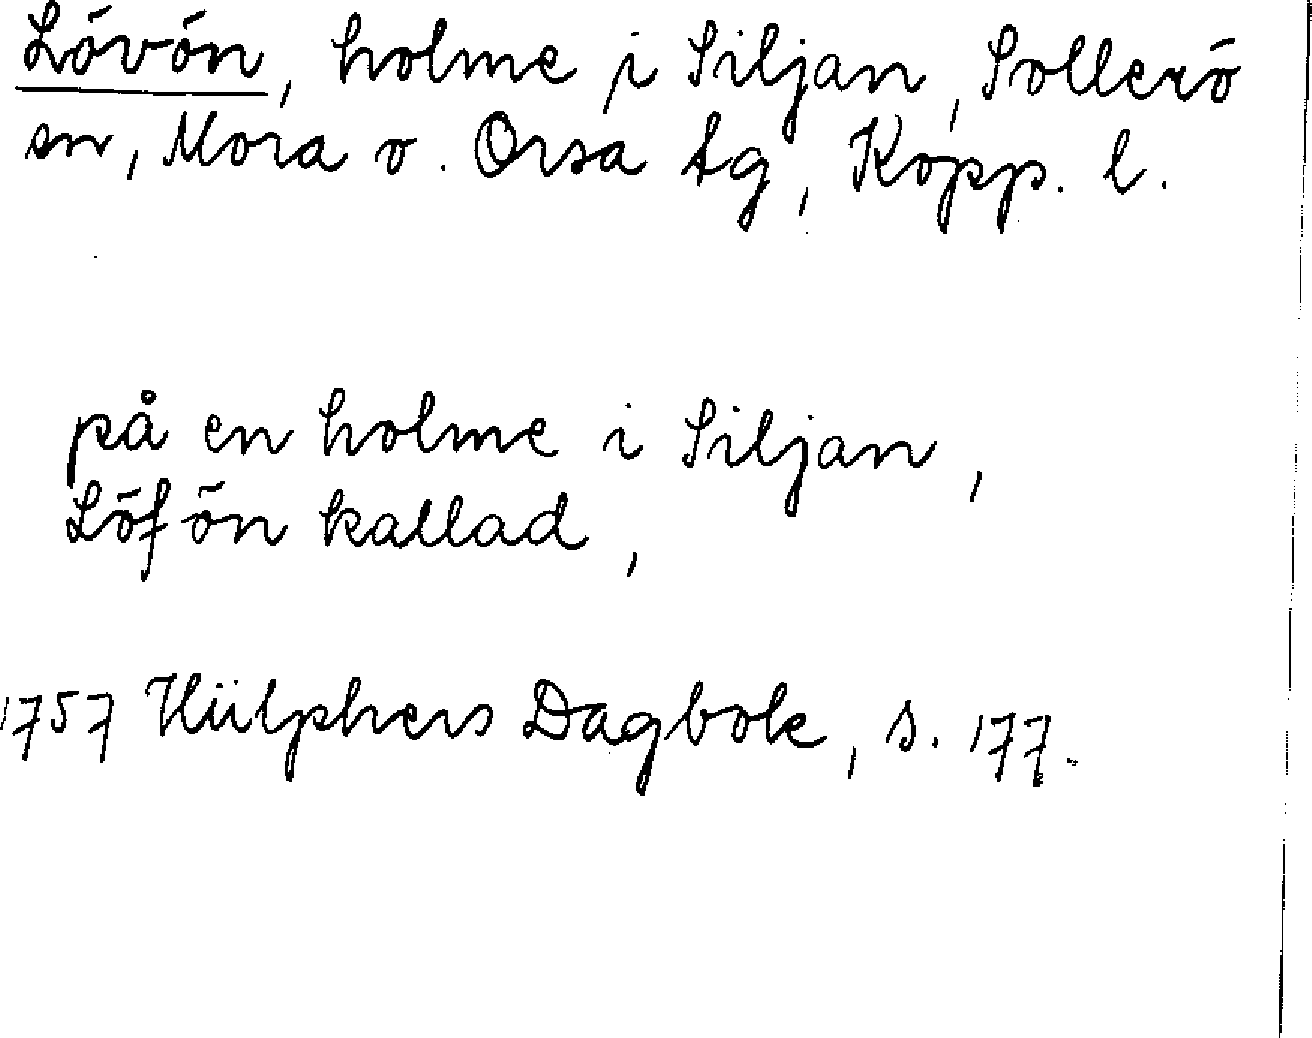 Lövön, holme i Siljan, Sollerö
sn, Mora o. Orsa tg, Kopp. l.
på en holme i Siljan,
Löfön kallad,
1757 Hülphers Dagbok, s. 177.